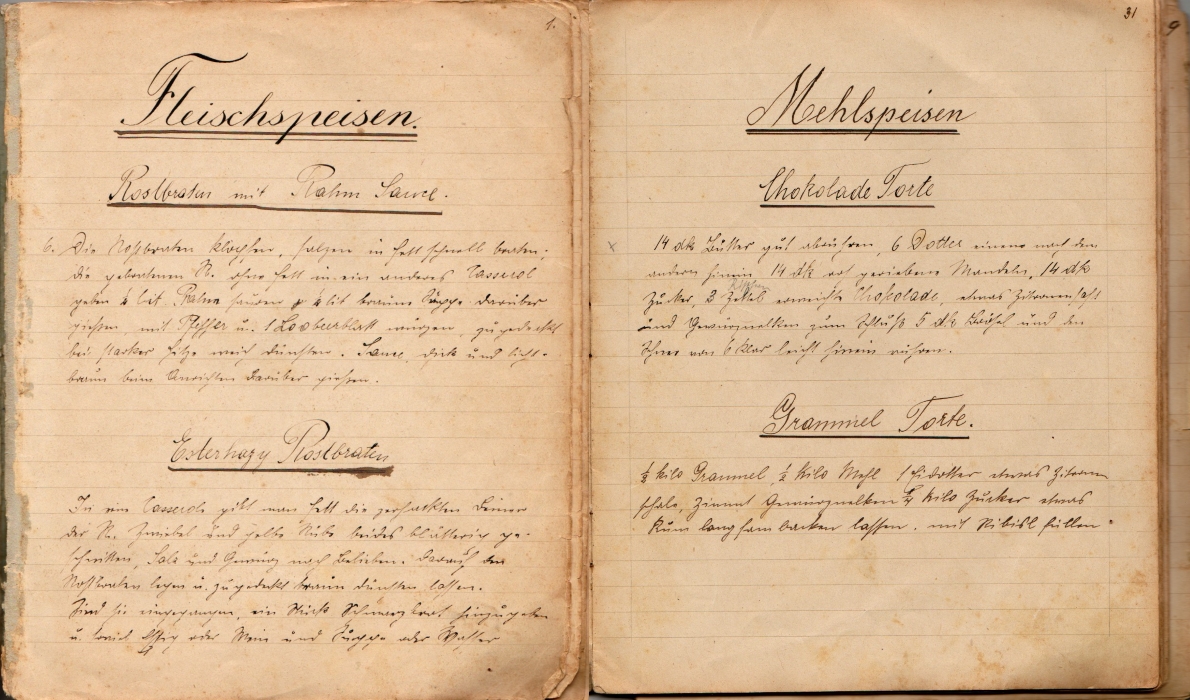 1.
Fleischspeisen.
Rostbraten mit Rahm Sauce.
6. Die Rostbraten klopfen, salzen in Fett schnell braten;
die gebratenen R. ohne Fett in ein anderes Casserol
geben ¼ lit. Rahm sauren ¼ lit braune Suppe darüber
gießen, mit Pfeffer u. 1 Lorbeerblatt würzen, zugedeckt
bei starker Hitze weich dünsten. Sauce, dick und licht-
braun beim Anrichten darüber gießen.
Esterhazy Rostbraten
In ein Casserole gibt man Fett die zerhackten Beiner
der R. Zwiebel und gelbe Rübe beides blätterig ge-
schnitten, Salz und Gewürz nach Belieben. Darauf den
Rostbraten legen u. zugedeckt braun dünsten lassen.
Sind sie eingegangen, ein Stück Schwarzbrot hinzugeben
u. Essig oder Wein und Suppe oder Wasser
31
Mehlspeisen
Chokolade Torte
x 14 dk Butter gut abrühren, 6 Dotter eines nach dem
andern hinein 14 dk rot geriebene Mandeln, 14 dk
Zucker, 3 erweichte Chokolade, etwas Zitronensaft
und Gewürznelken zum Schluß 5 dk Brösel und den
Schnee von 6 Klar leicht hinein rühren.
Grammel Torte.
½ Kilo Grammel, ½ Kilo Mehl 1 Eidotter etwas Zitronen
schale, Zimmt Gewürznelken ¼ Kilo Zucker etwas
Rum langsam backen lassen. mit Ribisl füllen.
9